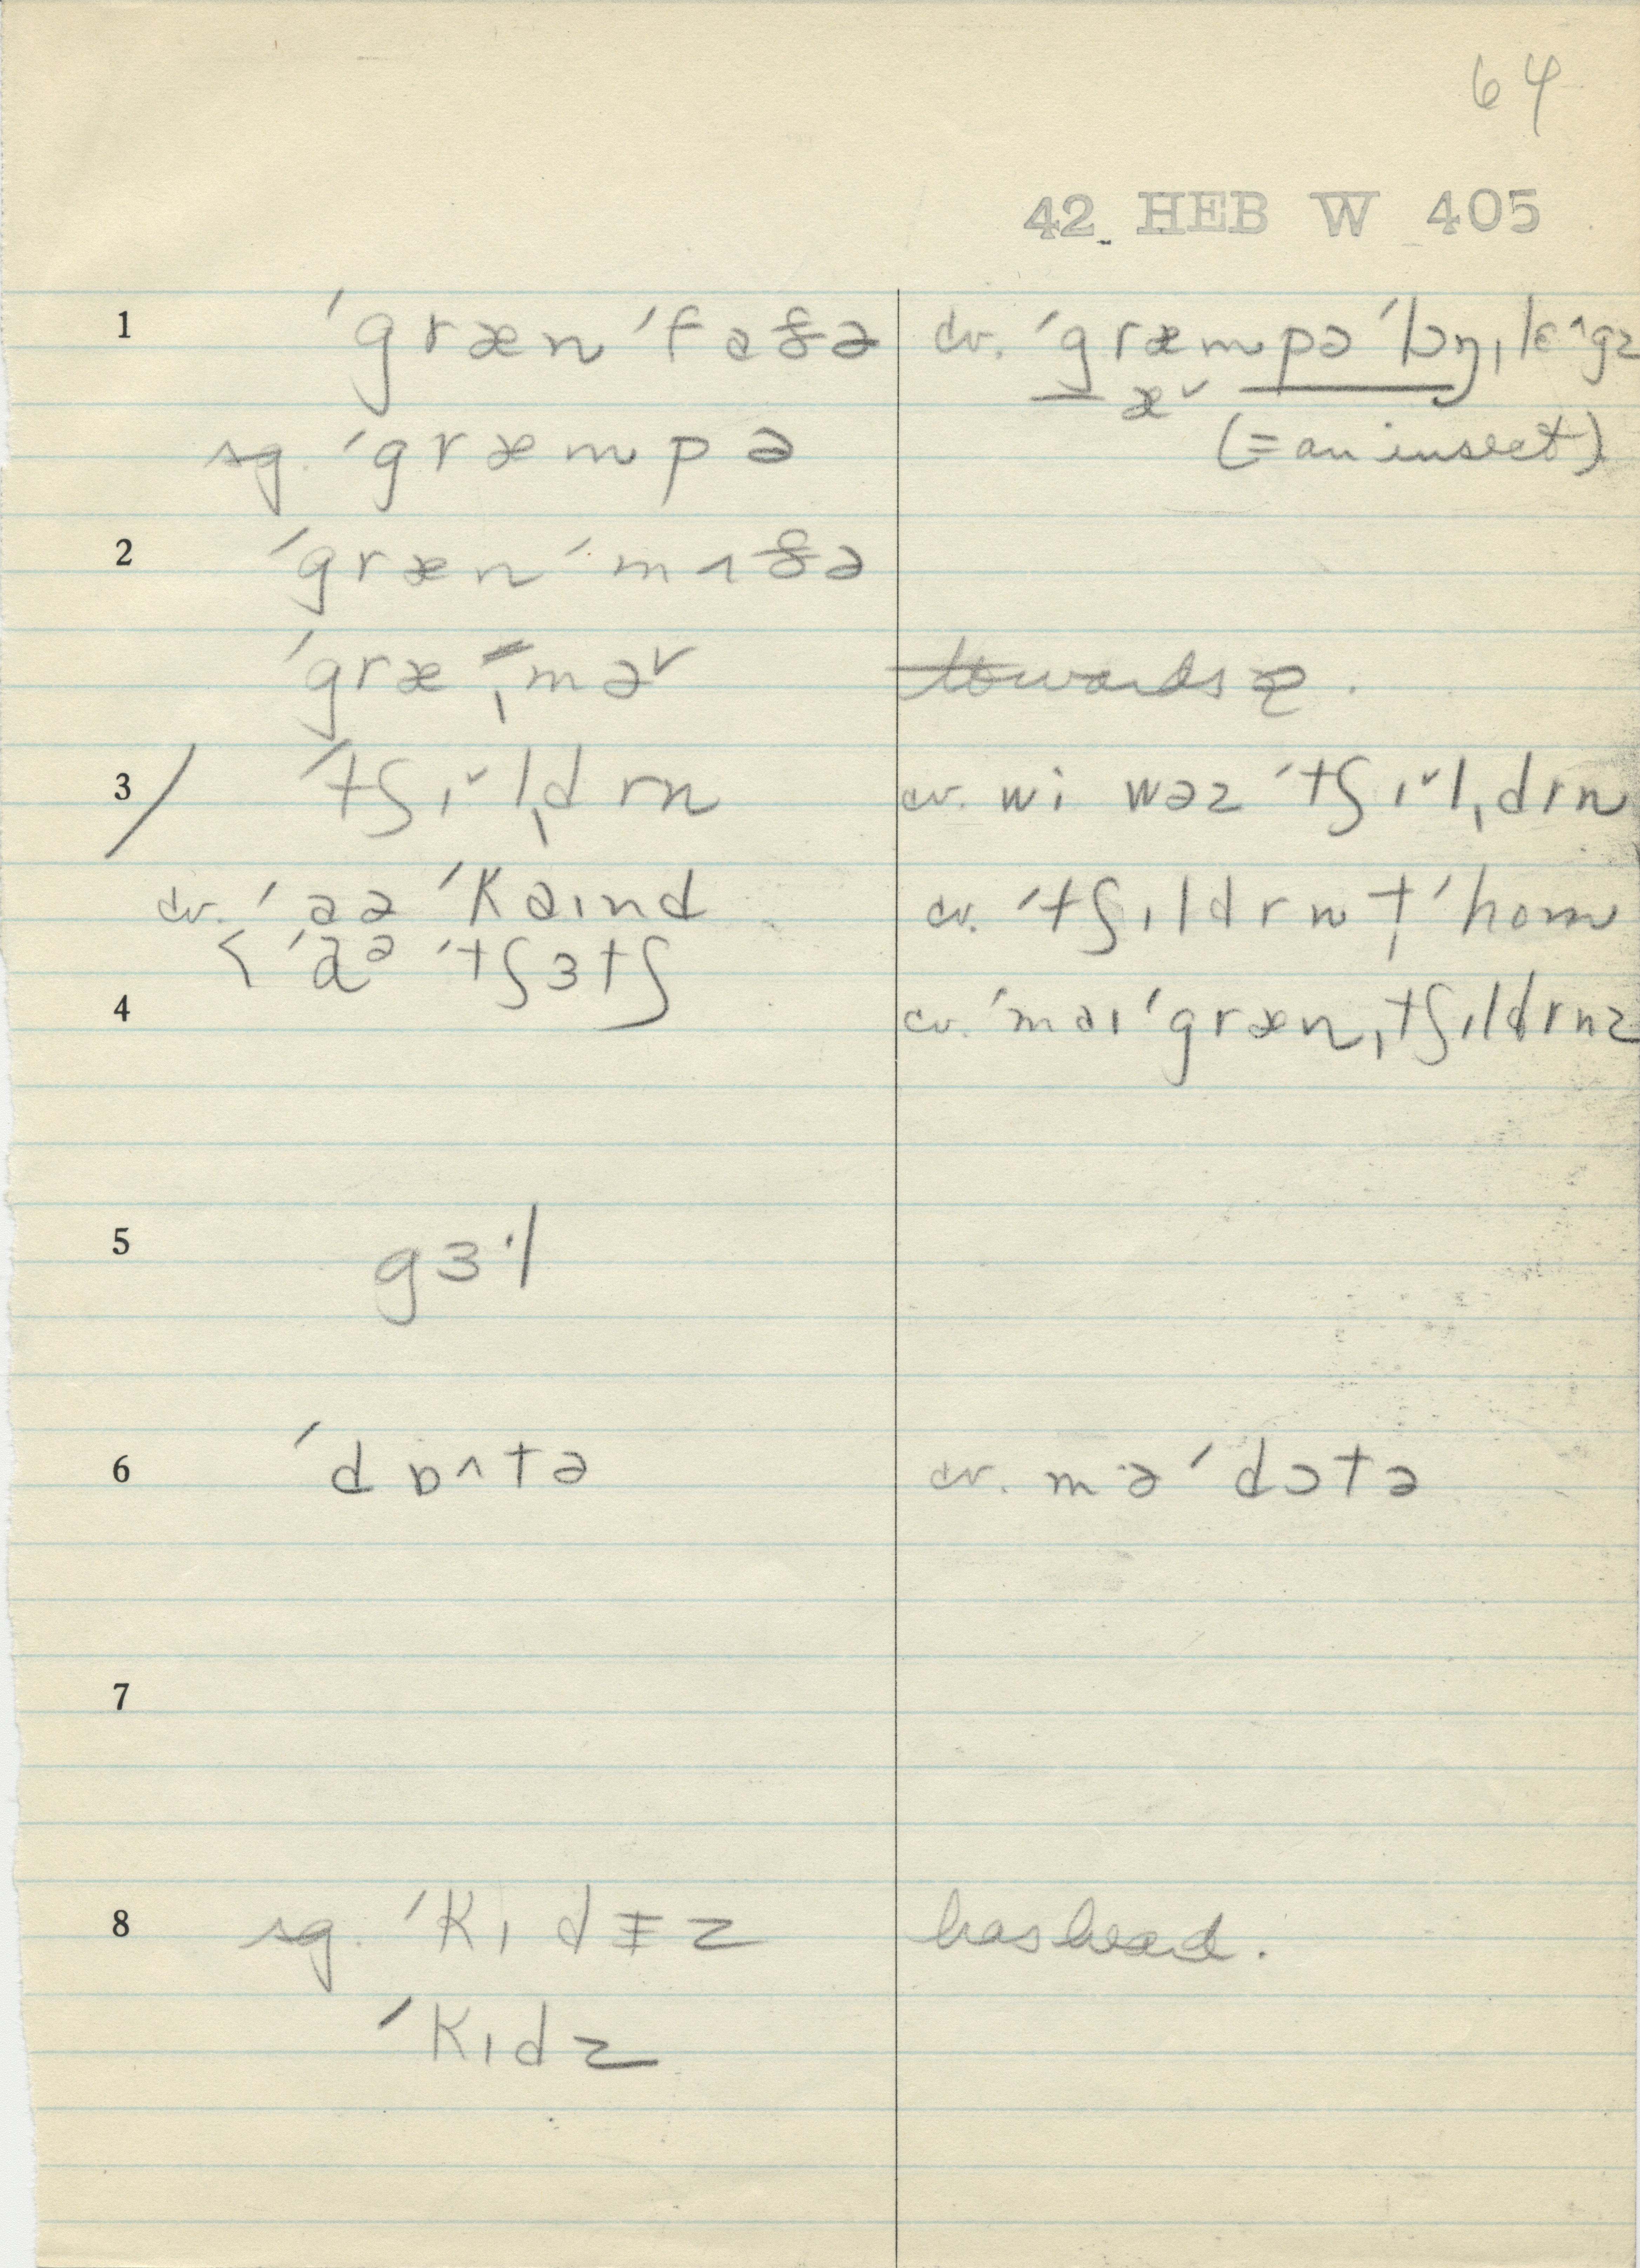 64
42 HEB W 405
1 ˈgrænˈfaðə cv. ˈgræmpəˈlɔŋˌlɛ^gz
æˇ
sg. ˈgræmpə (=an insect)
2 ˈgrænˈmʌðə
ˈgræˌməˇ towards æ.
3 / ˈtʃɪˇlˌdrn cv. wi wəz ˈtʃɪˇlˌdrn
cv. ˈaə ˈkaɪnd cv. ˈtʃɪldrn tˈhom
< ˈaᵊ ˈtʃɜtʃ
4 cv. ˈmaɪˈgrænˌtʃɪldrnz
5 gɜ·l
6 ˈdɒ^tə cv. məˈdɔtə
7
8 sg. ˈkɪdɪz has head.
ˈkɪdz